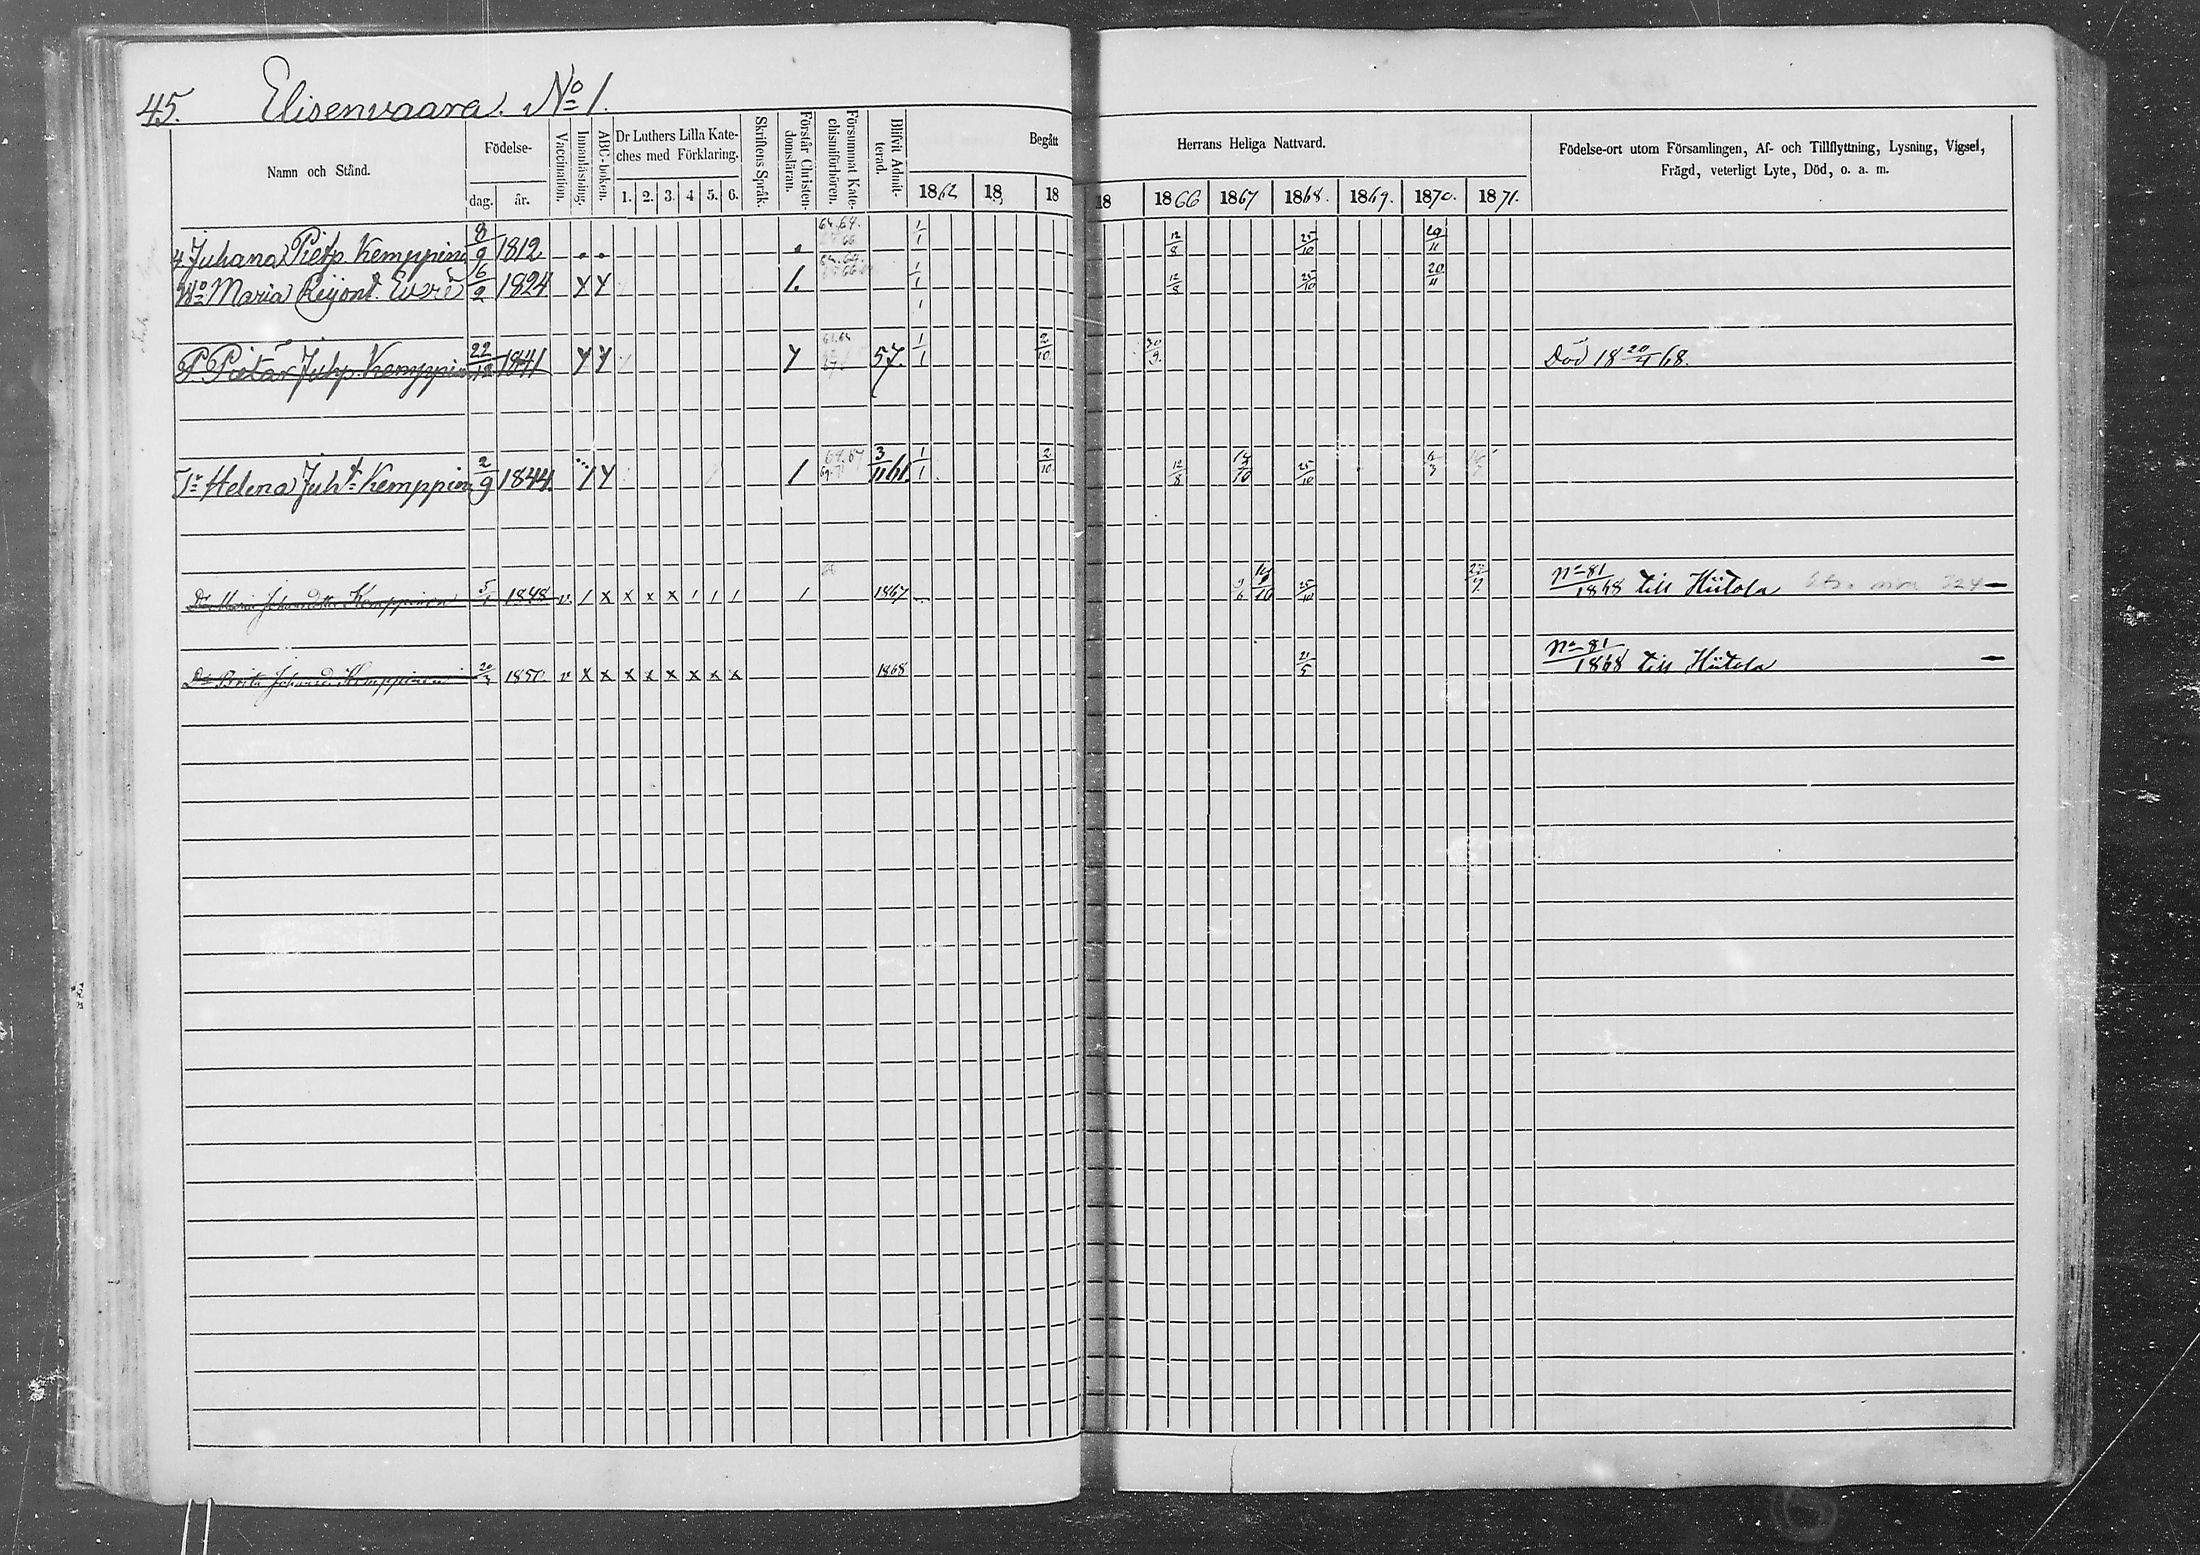 45. Elisenvaara. No 1.
Namn och Stånd.
Födelse-
dag. år.
Vaccination.
Innanläsning.
ABC-boken.
Dr Luthers Lilla Kate-
ches med Förklaring.
1. 2. 3. 4 5. 6.
Skriftens Språk.
Förstår Christen-
domsläran.
Försummat Kate-
chismiförhören.
Blifvit Admit-
terad.
Begått
1862 18 18
Herrans Heliga Nattvard.
18 1866 1867 1868. 1869. 1870. 1871.
Födelse-ort utom Församlingen, Af- och Tillflyttning, Lysning, Vigsel,
Frägd, veterligt Lyte, Död, o. a. m.
Juhana Pietp Kemppine 8/9 1812 1/1 12/8 25/10 20/11
Maria 6/2 1824 Y Y 1. 1/1 12/8 25/10 20/11
1
P. Pietar Juhp. Kemppin 22/12 1841 Y Y Y 57. 1/1 2/10 30/9. Död 18 20/4 68.
Helena Juht Kemppin 2/9 1844. 1 Y 1 3/11 61. 1/1 2/10 12/8 25/10
Maria Kemppinen 5/1 1848 v. 1 x x x x 1 1 1 1 1867 25/10 No 81/1868 till Hiitola
Johansd. Kemppinen 1850 v x x x x x x x x 1868 21/5 No 81/1868 till Hiitola